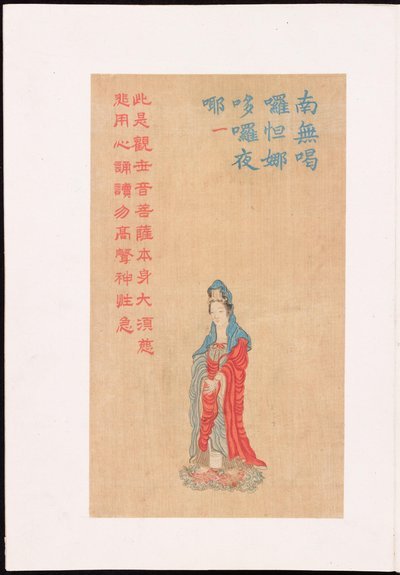 南無喝
囉怛娜
哆囉夜
㖿一
此是觀世音菩薩本身大須慈
悲用心誦讀勿高聲神性急